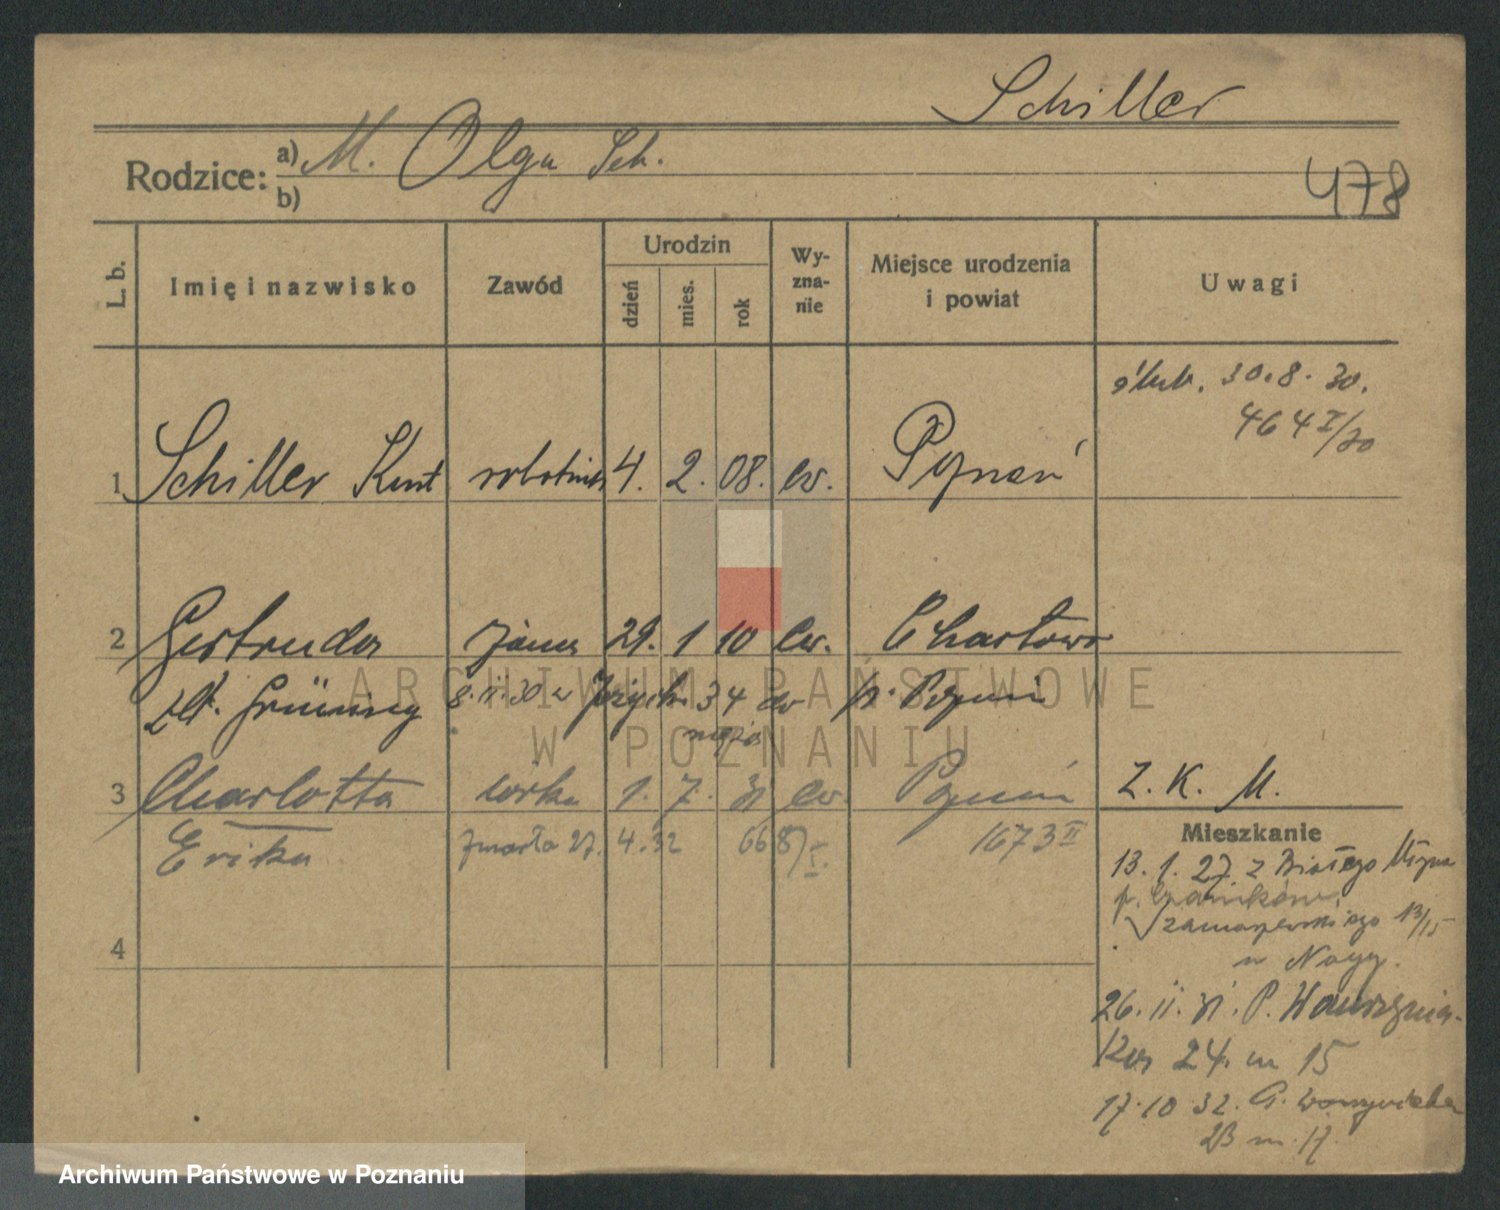 Schiller
Rodzice: a) M. Olga Sch.
b)
478
L. b. Imię i nazwisko Zawód Urodzin dzień mies. rok Wy-zna-nie Miejsce urodzenia i powiat Uwagi
ślub. 30.8.30.
464 I/30
1 Schiller Kurt robotnik 4. 2. 08. ew. Poznań
2 Gertruda żona 29. 1 10 ew. Chartowo
zd. Grüning 8.11.30 34 ew p. Poznań
męża
3 Charlotta córka 1. 7. 31 ew. Poznań
Z. K. M.
Erika zmarła 27. 4. 32 668/I. 1673 II
Mieszkanie
13. 1. 27 z Białego Młyna
p.
13/15
4
w
26. 11. 31. P. Wawrzynia-
ka 24. m 15
17.10 32. G.
23 m. 17.
ARCHIWUM PAŃSTWOWE
W POZNANIU
Archiwum Państwowe w Poznaniu